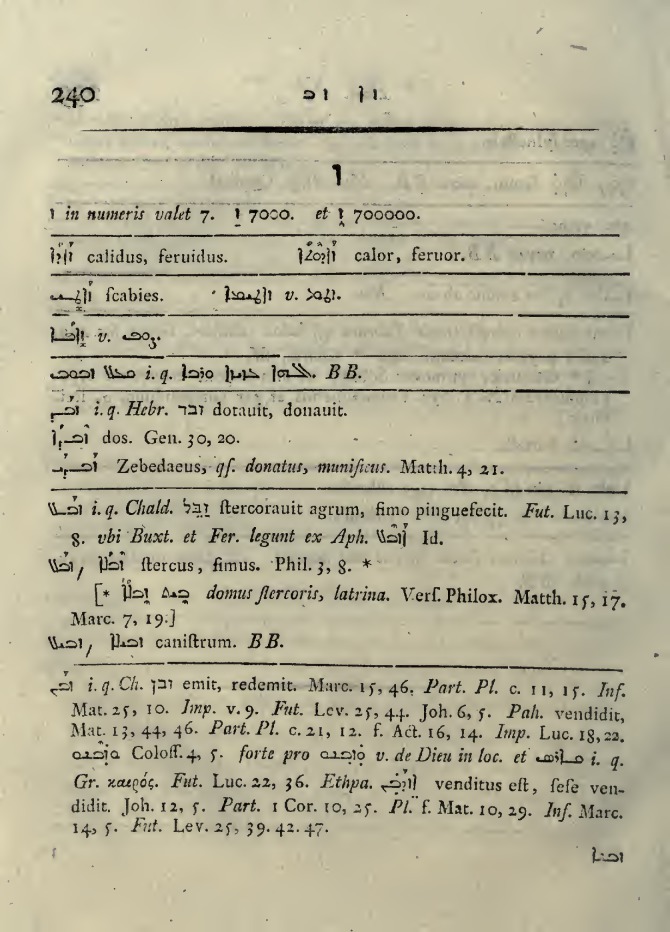 240 ܙܐ ܙܒ
ܙ
ܙ in numeris valet 7. ܙ 7000. et ܙ 700000.
calidus, feruidus. calor, feruor.
ſcabies. v.
v.
i. q. BB.
ܙܒܕ i. q. Hebr. זבד dotauit, donauit.
ܙܒܕܐ dos. Gen. 30, 20.
ܙܒܕܝ Zebedaeus, qſ. donatus, munificus. Matth. 4, 21.
ܙܒܠ i. q. Chald. זבל ſtercorauit agrum, fimo pinguefecit. Fut. Luc. 13,
8. vbi Buxt. et Fer. legunt ex Aph. ܐܙܒܠ Id.
ܙܒܠ, ܙܒܠܐ ſtercus, fimus. Phil. 3, 8. *
[* ܒܝܬ ܙܒܠܐ domus ſtercoris, latrina. Verſ. Philox. Matth. 15, 17.
Marc. 7, 19.]
ܙܒܝܠ, ܙܒܝܠܐ caniſtrum. BB.
ܙܒܢ i. q. Ch. זבן emit, redemit. Marc. 15, 46. Part. Pl. c. 11, 15. Inf.
Mat. 25, 10. Imp. v. 9. Fut. Lev. 25, 44. Joh. 6, 5. Pah. vendidit,
Mat. 13, 44, 46. Part. Pl. c. 21, 12. f. Act. 16, 14. Imp. Luc. 18, 22.
Coloſſ. 4, 5. forte pro v. de Dieu in loc. et i. q.
Gr. καιρός. Fut. Luc. 22, 36. Ethpa. ܐܙܕܒܢ venditus eſt, ſeſe ven-
didit. Joh. 12, 5. Part. 1 Cor. 10, 25. Pl. f. Mat. 10, 29. Inf. Marc.
14, 5. Fut. Lev. 25, 39. 42. 47.
ܙܒܢܐ